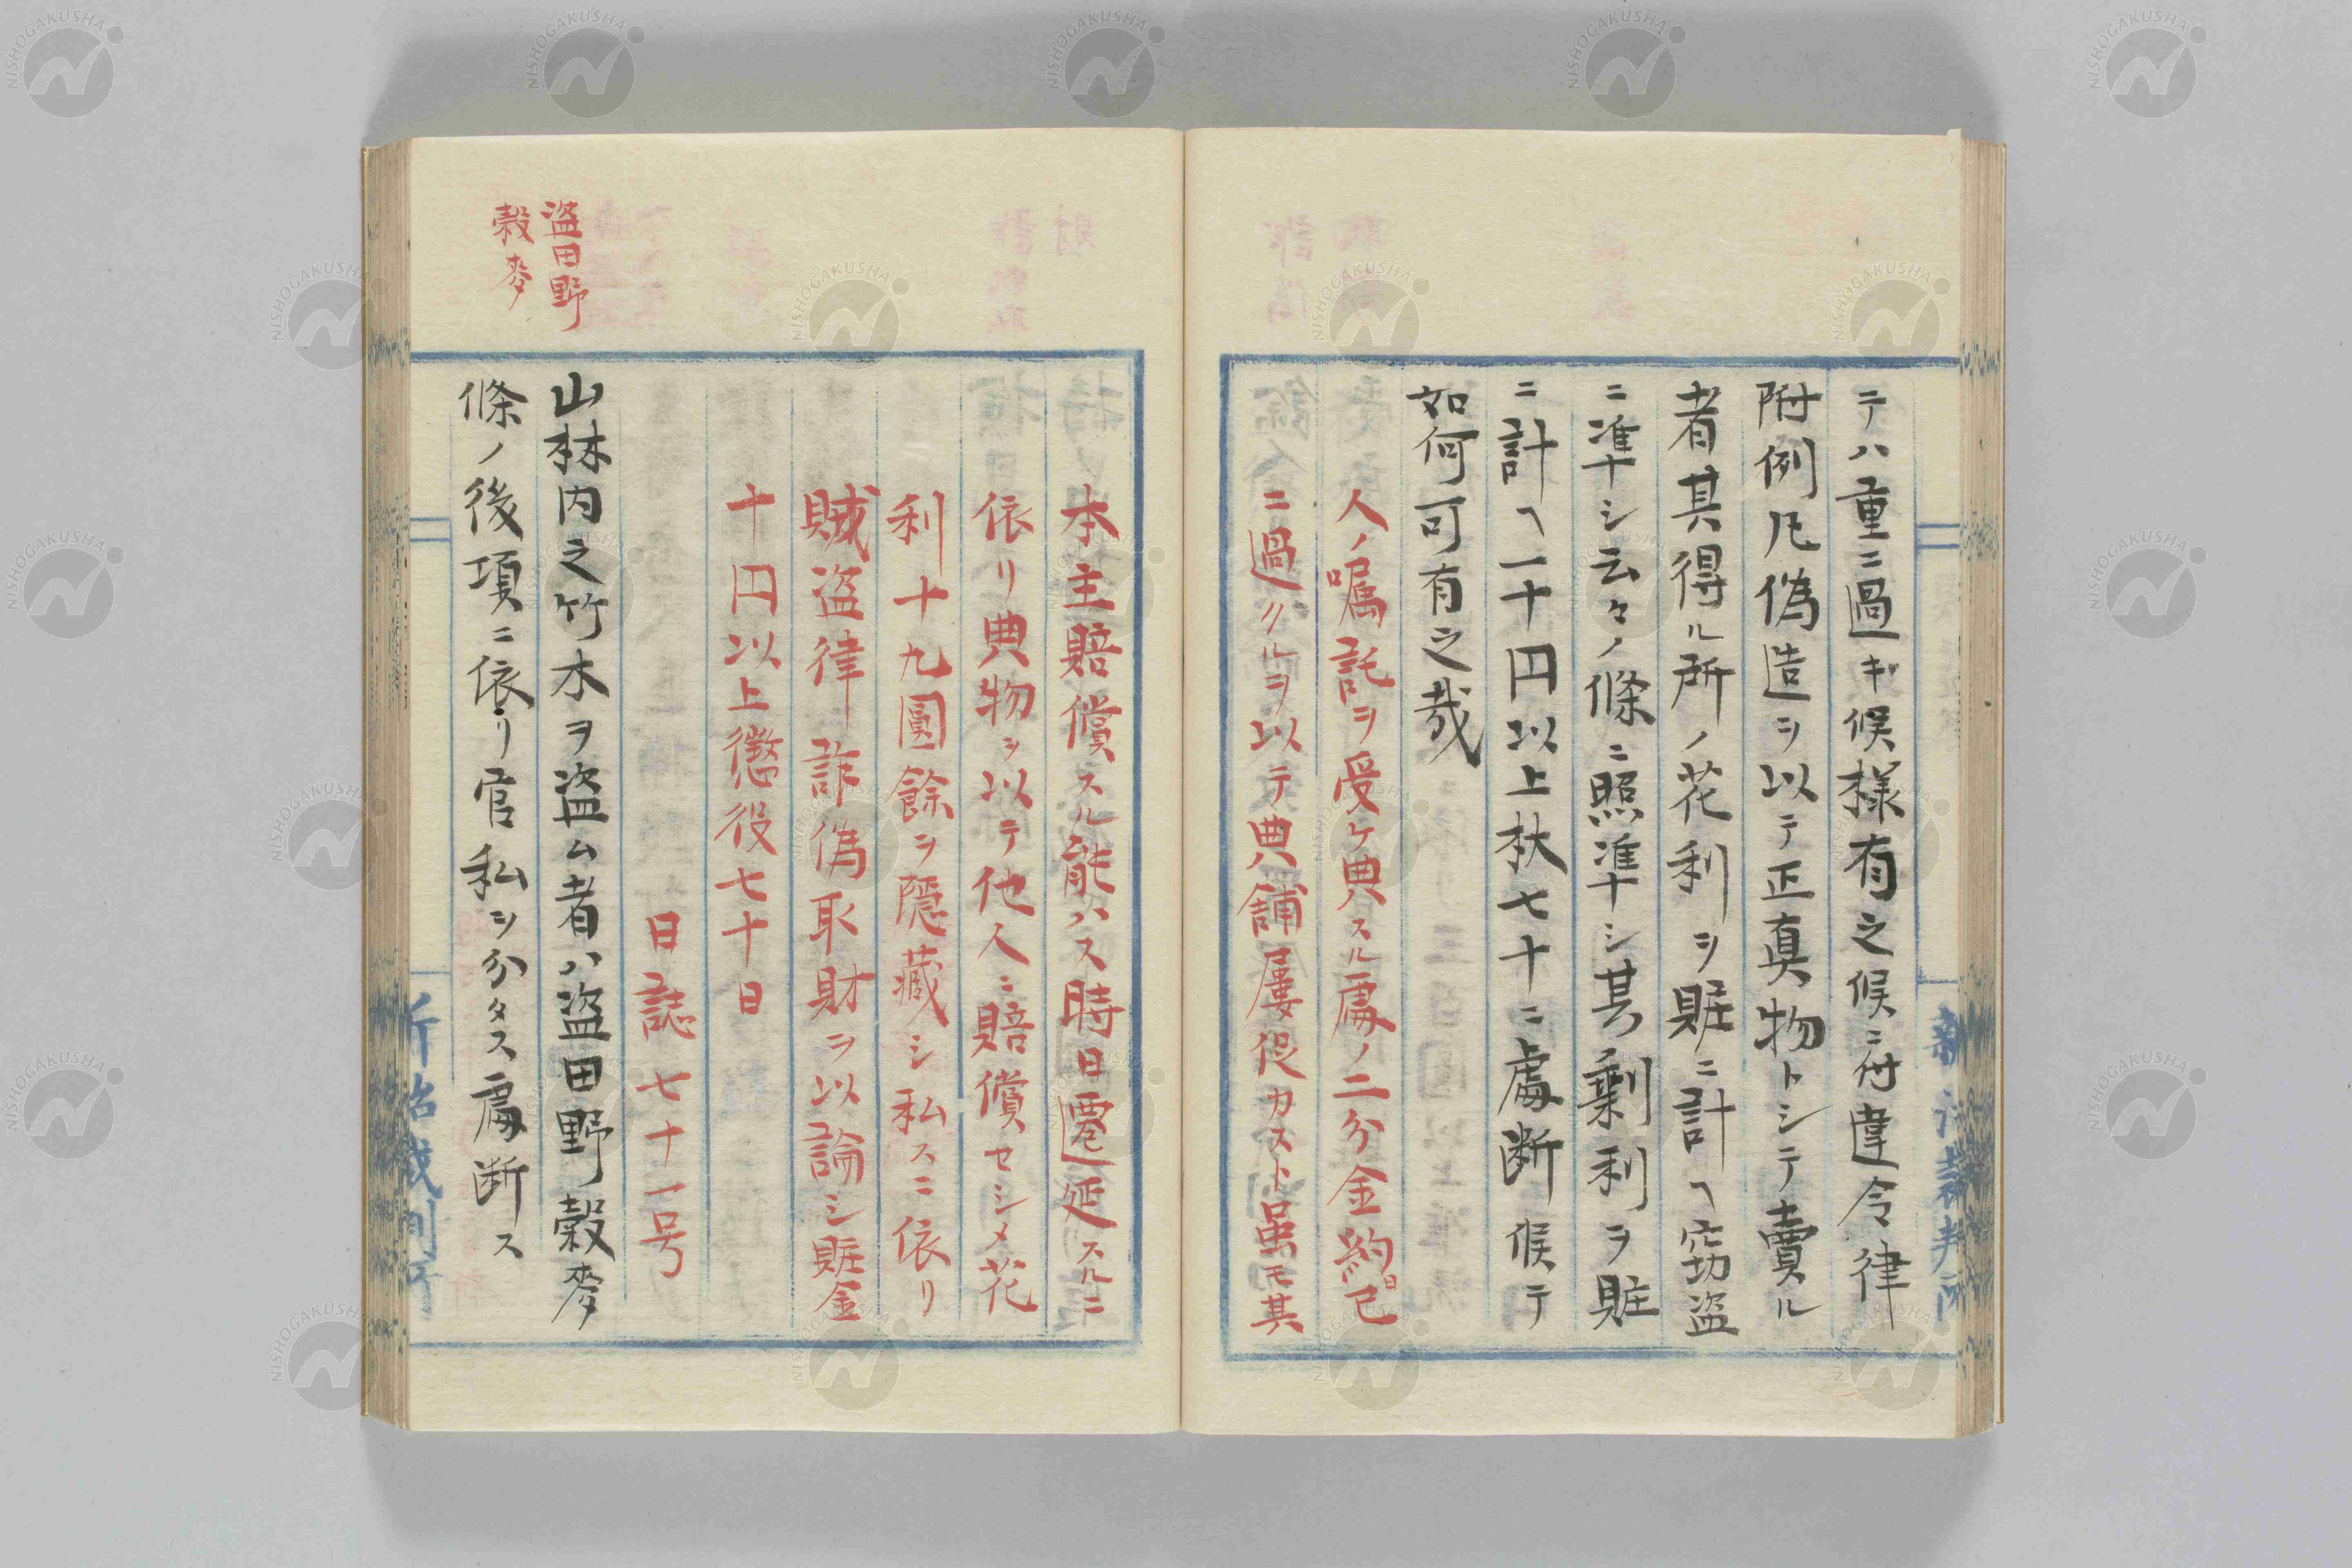 テハ重ニ過ギ候様有之候ニ付違令律
附例凡偽造ヲ以テ正真物トシテ賣ル
者其得ル所ノ花利ヲ賍ニ計ヘ窃盗
ニ準シ云々ノ條ニ照準シ其剰利ヲ賍
ニ計ヘ一十円以上杖七十ニ處断候テ
如何可有之哉
人ノ嘱託ヲ受ケ典スル處ノ二分金約日已
ニ過クルヲ以テ典舗屢促カスト虽モ其
本主賠償スル能ハス時日遷延スルニ
依リ典物ヲ以テ他人ニ賠償セシメ花
利十九圓餘ヲ隱藏シ私スニ依リ
賊盗律詐偽取財ヲ以論シ賍金
十円以上懲役七十日
日誌七十一号
盗田野
穀麥
山林内之竹木ヲ盗ム者ハ盗田野穀麥
條ノ後項ニ依リ官私ヲ分タス處断ス
新治裁判所
新治裁判所
NISHOGAKUSHA